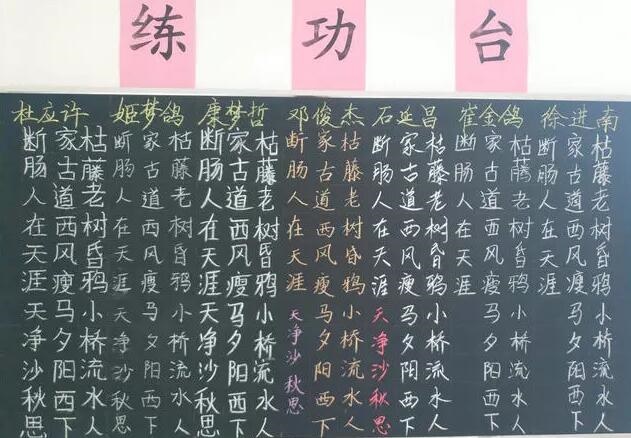 练功台
杜应许
枯藤老树昏鸦小桥流水人
家古道西风瘦马夕阳西下
断肠人在天涯天净沙秋思
姬梦鸽
枯藤老树昏鸦小桥流水人
家古道西风瘦马夕阳西下
断肠人在天涯天净沙秋思
康梦哲
枯藤老树昏鸦小桥流水人
家古道西风瘦马夕阳西下
断肠人在天涯天净沙秋思
邓俊杰
枯藤老树昏鸦小桥流水人
家古道西风瘦马夕阳西下
断肠人在天涯 天净沙 秋思
石延昌
枯藤老树昏鸦小桥流水人
家古道西风瘦马夕阳西下
断肠人在天涯 天净沙秋思
崔金鸽
枯藤老树昏鸦小桥流水人
家古道西风瘦马夕阳西下
断肠人在天涯
徐进南
枯藤老树昏鸦小桥流水人
家古道西风瘦马夕阳西下
断肠人在天涯